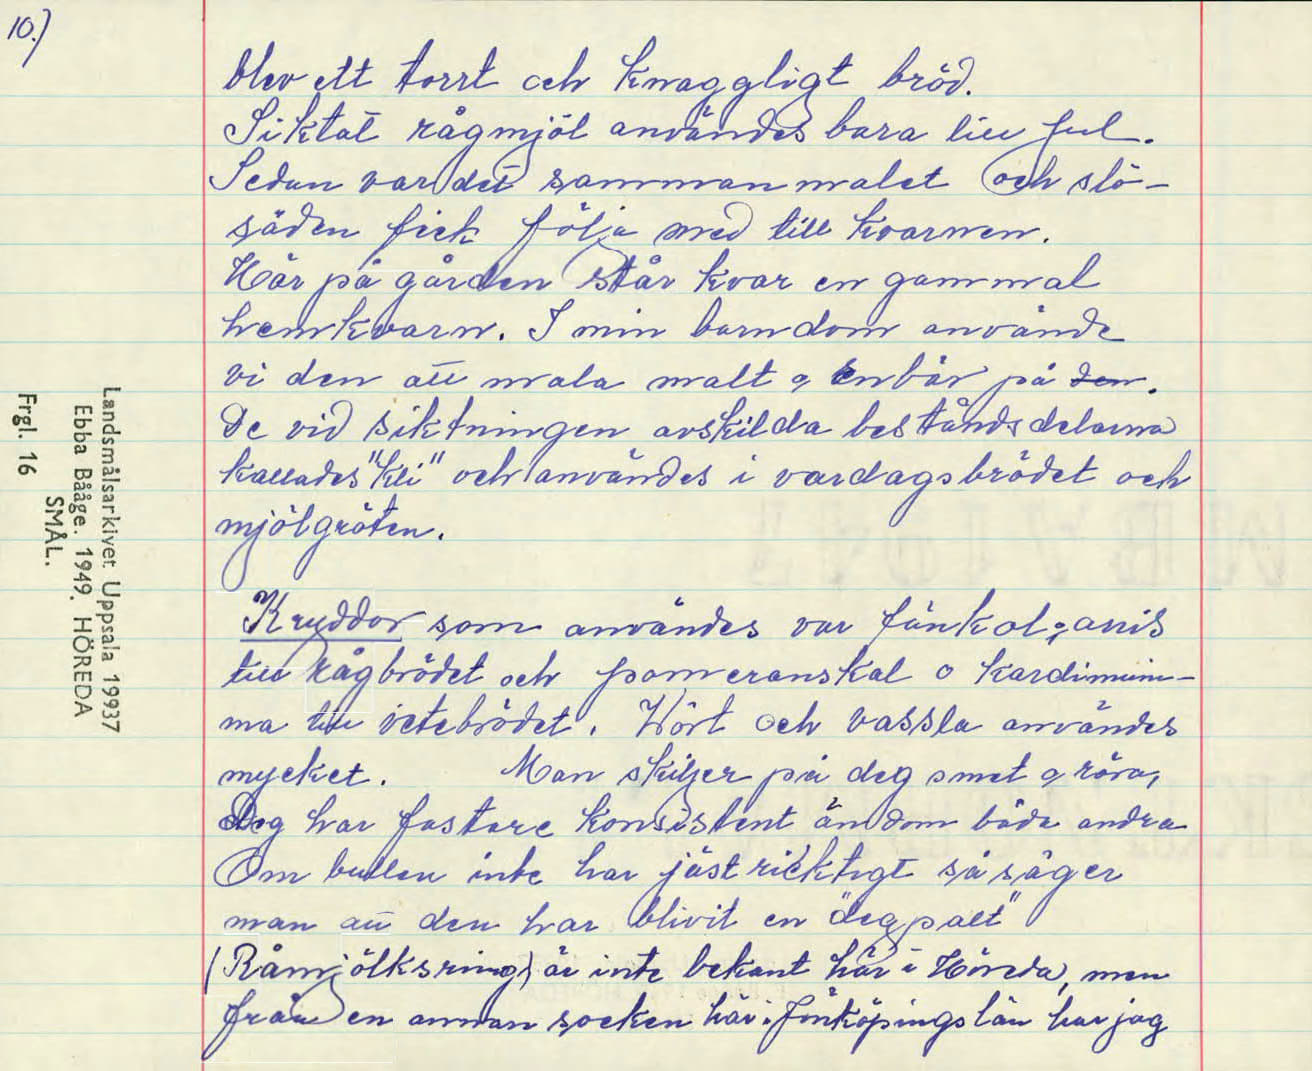 10.)
blev ett torrt och knaggligt bröd.
Siktat rågmjöl användes bara till jul.
Sedan var det sammanmalet och slö-
säden fick följa med till kvarnen.
Här på gården står kvar en gammal
hemkvarn. I min barndom använde
vi den att mala malt o, enbär på den.
De vid siktningen avskilda beståndsdelarna
kallades "kli" och användes i vardagsbrödet och
mjölgröten.
Kryddor som användes var fänkol, anis
till rågbrödet och pomeranskal o kardimum-
ma till vetebrödet. Vört och vassla användes
mycket. Man skiljer på deg smet o, röra,
Deg har fastare konsistent än dom båda andra
Om bullen inte har jäst ricktigt så säger
man att den har blivit en "degpalt"
(Råmjölksring) är inte bekant här i Höreda, men
från en annan socken här i Jönköpingslän har jag
Landsmålsarkivet, Uppsala 19937
Ebba Bååge. 1949. HÖREDA
SMÅL.
Frgl. 16